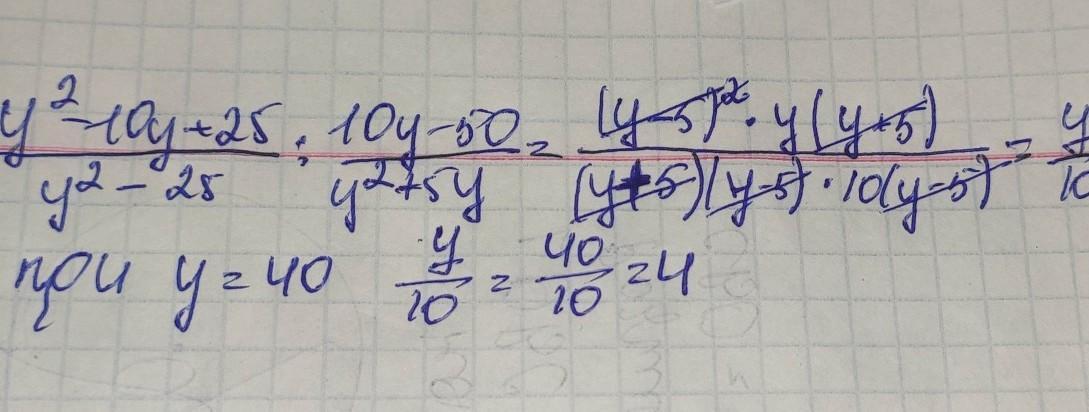 (y² - 10y + 25)/(y² - 25) : (10y - 50)/(y² + 5y) = ((y - 5)² · y(y + 5))/((y + 5)(y - 5) · 10(y - 5)) = y/10
при y = 40 y/10 = 40/10 = 4